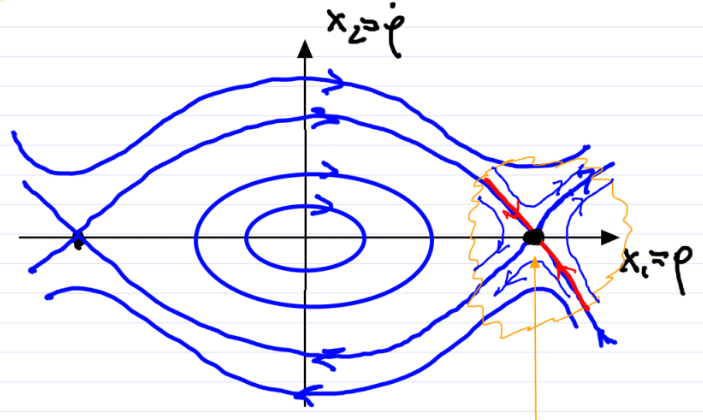 x₂=φ̇
x₁=φ